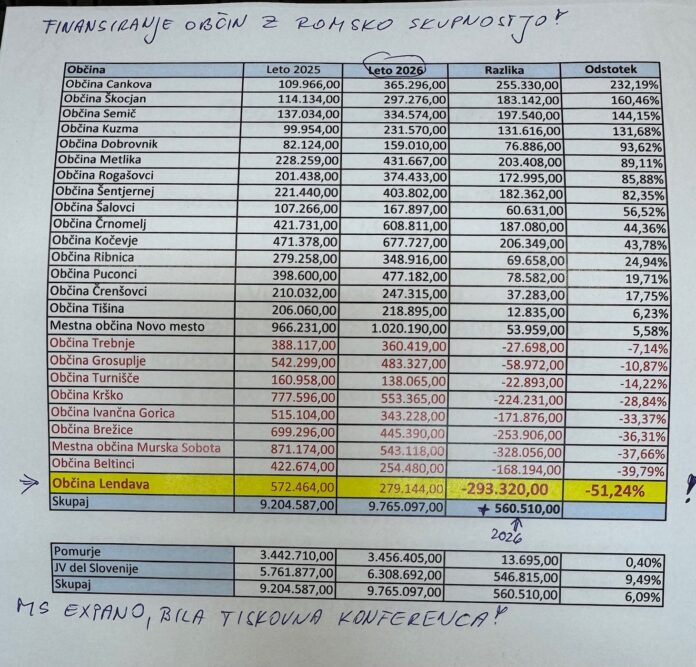 FINANSIRANJE OBČIN Z ROMSKO SKUPNOSTJO!
Občina Leto 2025 Leto 2026 Razlika Odstotek
Občina Cankova 109.966,00 365.296,00 255.330,00 232,19%
Občina Škocjan 114.134,00 297.276,00 183.142,00 160,46%
Občina Semič 137.034,00 334.574,00 197.540,00 144,15%
Občina Kuzma 99.954,00 231.570,00 131.616,00 131,68%
Občina Dobrovnik 82.124,00 159.010,00 76.886,00 93,62%
Občina Metlika 228.259,00 431.667,00 203.408,00 89,11%
Občina Rogašovci 201.438,00 374.433,00 172.995,00 85,88%
Občina Šentjernej 221.440,00 403.802,00 182.362,00 82,35%
Občina Šalovci 107.266,00 167.897,00 60.631,00 56,52%
Občina Črnomelj 421.731,00 608.811,00 187.080,00 44,36%
Občina Kočevje 471.378,00 677.727,00 206.349,00 43,78%
Občina Ribnica 279.258,00 348.916,00 69.658,00 24,94%
Občina Puconci 398.600,00 477.182,00 78.582,00 19,71%
Občina Črenšovci 210.032,00 247.315,00 37.283,00 17,75%
Občina Tišina 206.060,00 218.895,00 12.835,00 6,23%
Mestna občina Novo mesto 966.231,00 1.020.190,00 53.959,00 5,58%
Občina Trebnje 388.117,00 360.419,00 -27.698,00 -7,14%
Občina Grosuplje 542.299,00 483.327,00 -58.972,00 -10,87%
Občina Turnišče 160.958,00 138.065,00 -22.893,00 -14,22%
Občina Krško 777.596,00 553.365,00 -224.231,00 -28,84%
Občina Ivančna Gorica 515.104,00 343.228,00 -171.876,00 -33,37%
Občina Brežice 699.296,00 445.390,00 -253.906,00 -36,31%
Mestna občina Murska Sobota 871.174,00 543.118,00 -328.056,00 -37,66%
Občina Beltinci 422.674,00 254.480,00 -168.194,00 -39,79%
Občina Lendava 572.464,00 279.144,00 -293.320,00 -51,24% !
Skupaj 9.204.587,00 9.765.097,00 + 560.510,00
2026
Pomurje 3.442.710,00 3.456.405,00 13.695,00 0,40%
JV del Slovenije 5.761.877,00 6.308.692,00 546.815,00 9,49%
Skupaj 9.204.587,00 9.765.097,00 560.510,00 6,09%
MS EXPANO, BILA TISKOVNA KONFERENCA!